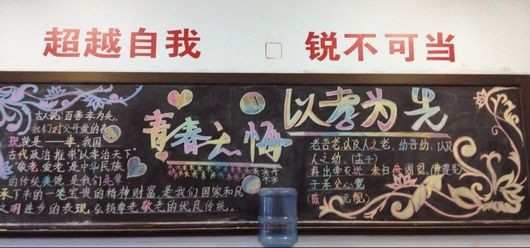 超越自我 锐不可当
青春无悔
以孝为先
古人说:百善孝为先。
我们对父母爱的表
现就是——孝,我国
古代政治推崇以孝治天下
敬老爱老是中华民族
的传统美德,是我们先辈
承下来的一笔宝贵的精神财富,是我们国家和民
文明进步的表现,弘扬尊老敬老的优良传统。
老吾老,以及人之老,幼吾幼,以及
人之幼。(孟子)